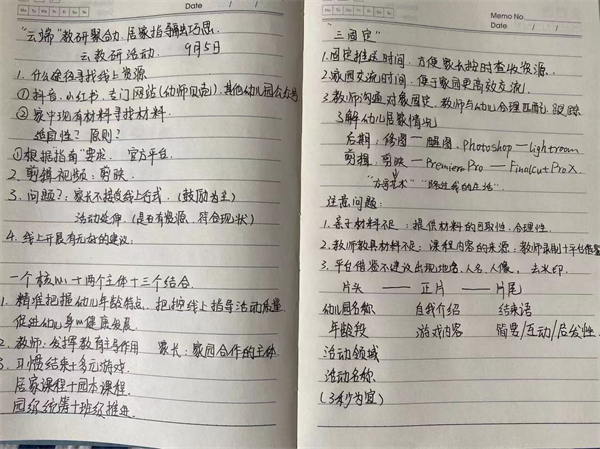 Date
"云端"教研聚合力 居家指导融巧思
云教研活动 9月5日
1. 什么途径寻找线上资源
①抖音、小红书、专门网站(幼师贝壳)、其他幼儿园公众号
②家中现有材料寻找材料
选自性? 原则?
①根据指南"要求 官方平台
2. 剪辑视频:剪映
3. 问题?:家长不接受线上形式 (鼓励为主)
活动延伸 (是否有资源 符合现状)
4. 线上开展有无好的建议:
一个核心+两个主体+三个结合
1. 精准把握幼儿年龄特点,把控线上指导活动质量
促进幼儿身心健康发展
2. 教师:发挥教育主导作用 家长:家园合作的主体
3. 习惯结束+多元游戏
居家课程+园本课程
园级统筹+班级推进
Memo No.
Date
"三固定"
1.固定推送时间,方便家长按时查收资源
2.家园交流时间,便于家园更高效交流
3.教师沟通对象固定,教师与幼儿合理匹配,跟踪
了解幼儿居家情况
后期:修图—醒图 Photoshop—Lightroom
剪辑:剪映—Premiere Pro—Final Cut Pro X
注意问题:
1. 基于材料不足:提供材料的可取性、合理性
2. 教师教具材料不足:课程内容的来源:教师录制+平台借鉴
3. 平台借鉴不建议出现地名、人名、人像,去水印
片头——正片——片尾
幼儿园名称 自我介绍 结束语
年龄段 游戏内容 简要/互动/启发性
活动领域
活动名称
(3秒为宜)